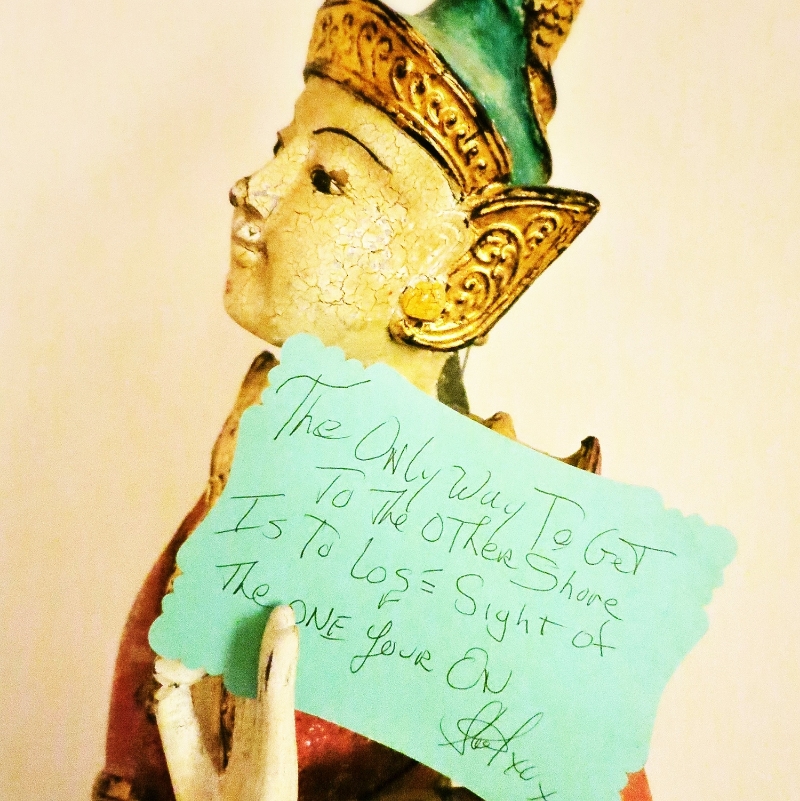 The Only Way To Get
To The Other Shore
Is To Lose Sight of
The ONE Your ON
xox